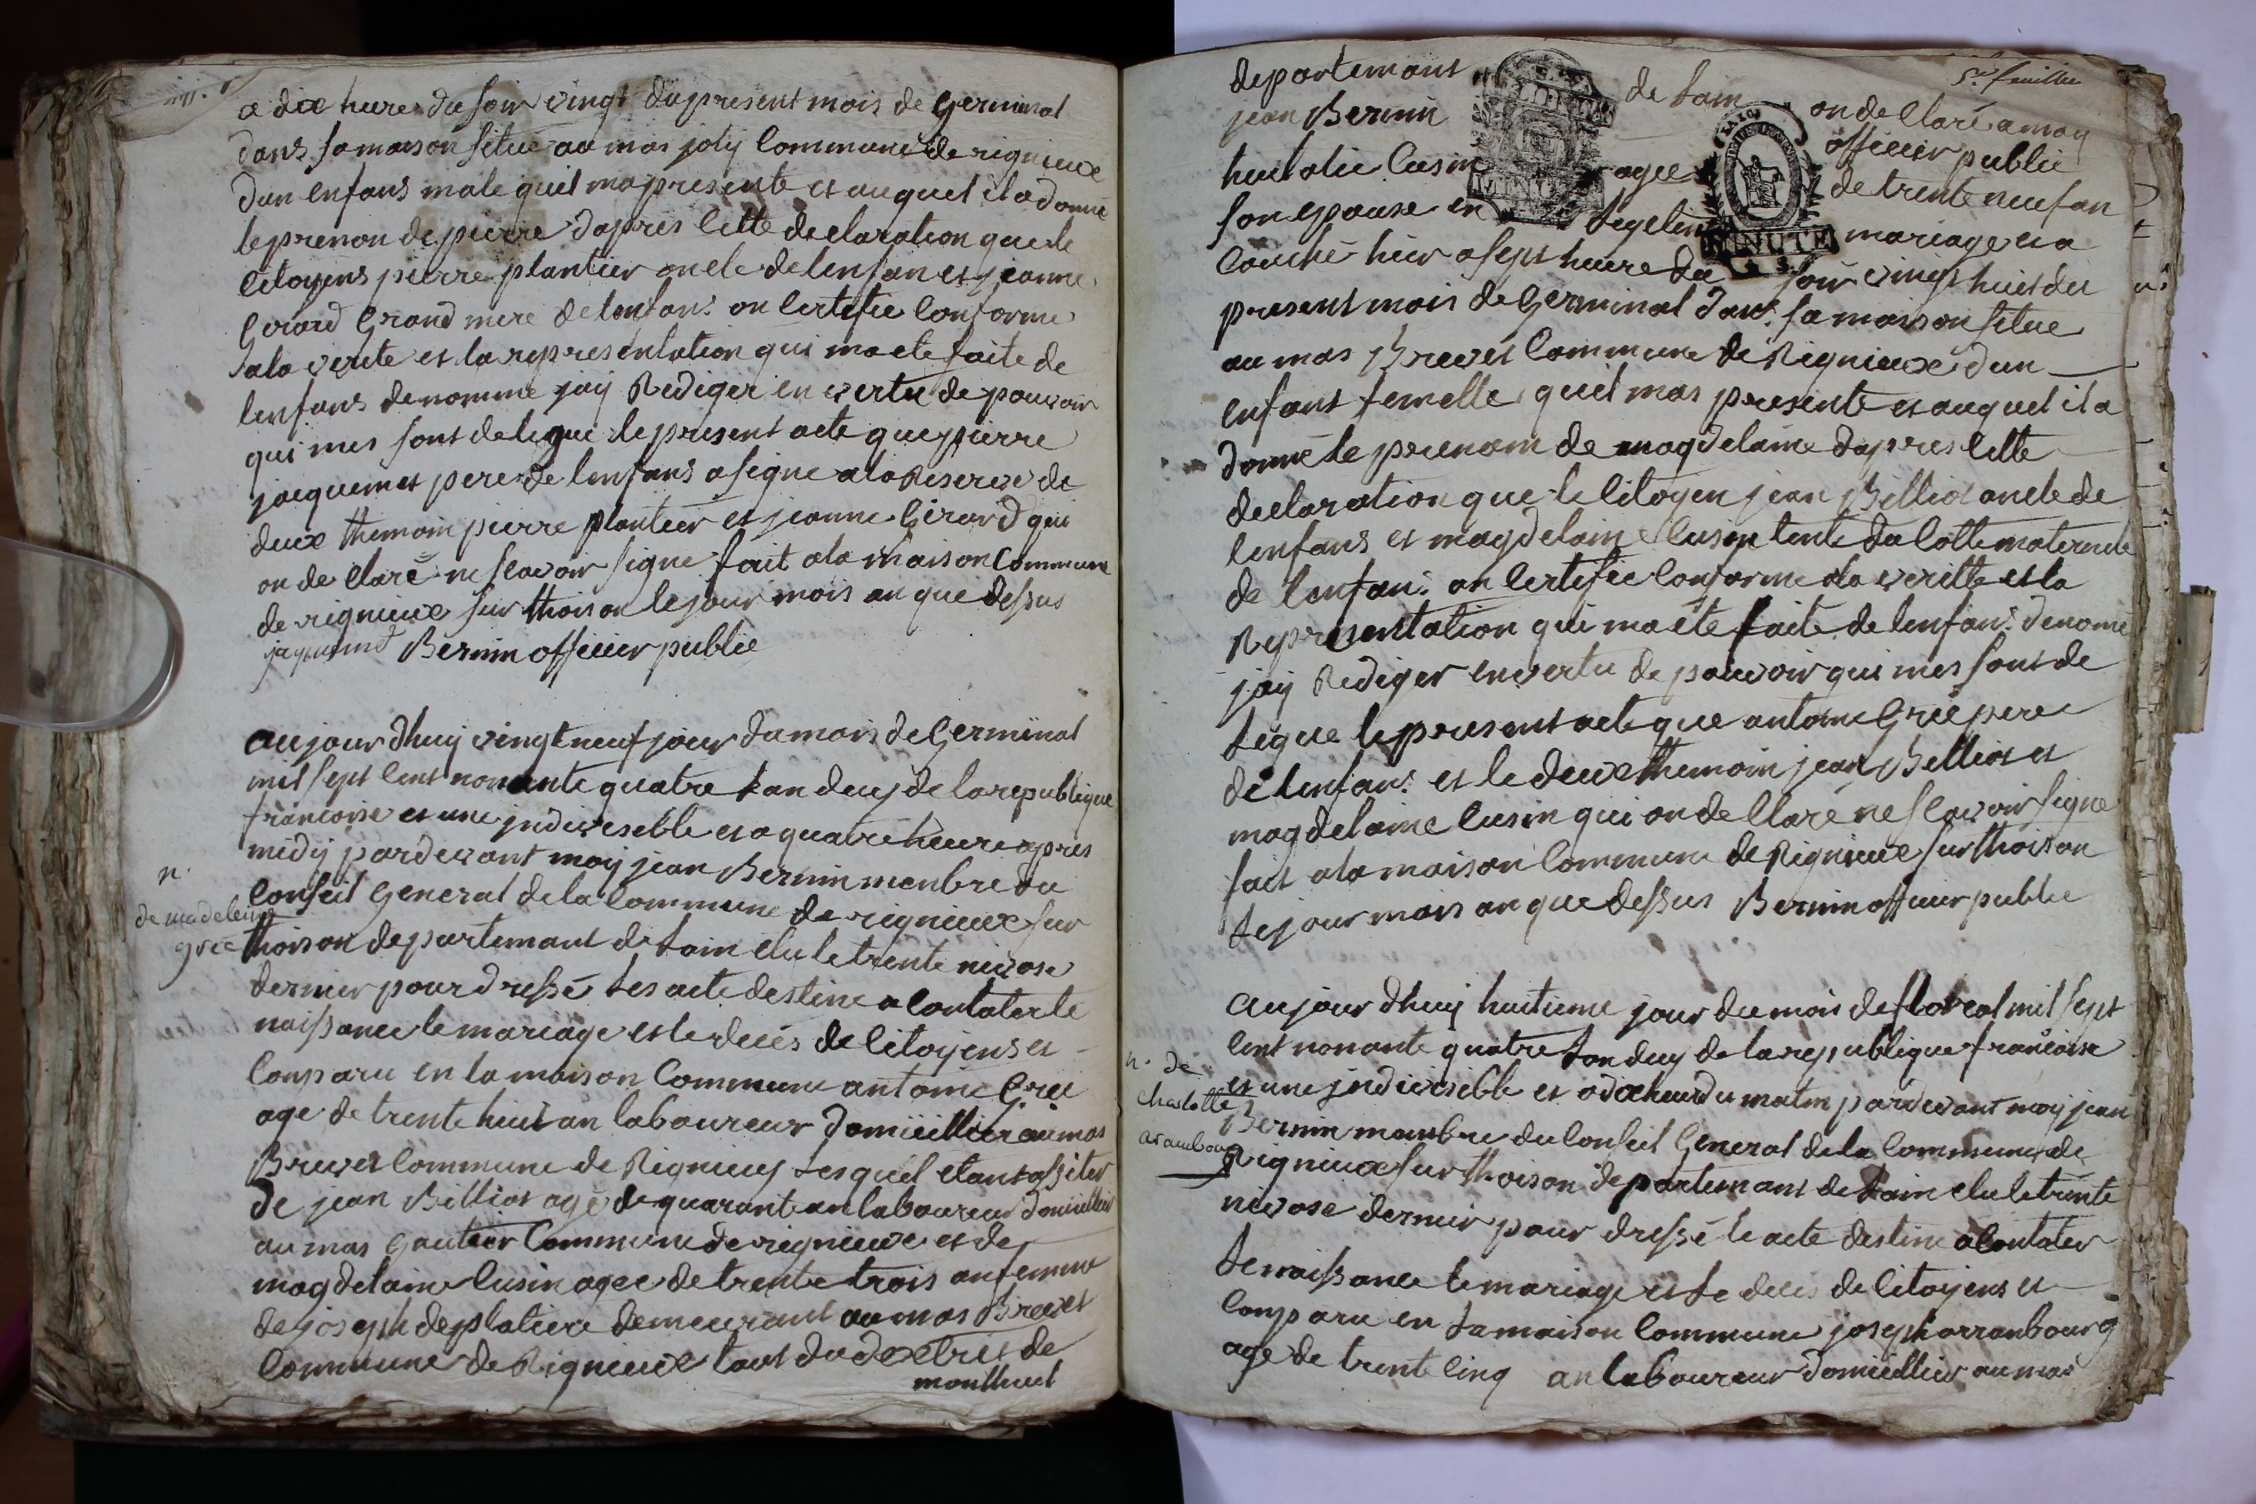 a dix heure du soir vingt du present mois de Germinal
dans sa maison situe au mas joly Commune de rignieux
dun enfans male quil ma presente et auquel il a donné
le prenon de pierre dapres cette declaration que le
citoyens pierre plantier oncle de lenfan et jeanne
Gerard Grand mere de lenfan on certifie conforme
a la verite et la representation qui ma ete faite de
lenfans denomme jay Rediger en vertu de pouvoir
qui mes sont delegue le present acte que pierre
jacquemet pere de lenfans a signe a la Reserve de
deux themoin pierre planteer et jeanne Girard qui
on de claré ne scavoir signe fait a la maison Commune
de rignieux sur thoison le jour mois an que dessus
Bernin officier public
aujourdhuy vingt neuf jour du mois de Germinal
mil sept cent nonante quatre l an deuy de la republique
francoise et une jndivesible et a quatre heure apres
midy pardevant moy jean Bernin menbre du
Conseil General de la Commune de rignieux sur
thoison departemant de lain elu le trente nivose
dernier pour dressé les acte destine a contater le
naissance le mariage et le decés de citoyens et
Conparu en la maison Commune antoine Gree
age de trente huit an laboureur domicillier au mas
Brevet Commune de Rignieuy lesquel etant assiter
de jean Billiot agé de quarante an laboureur domicillier
au mas Gautier Commune de rignieux et de
magdelaine Cusin agee de trente trois an femme
de joseph deplatiere demeurant au mas Brevet
Commune de Rignieux tout du dextrit de
montluel
n.
de madeleine
grée
5e. feuillee
departemant de lain on de claré a moy
jean Bernin officier public
agee de trente neuf an
son epouse en legetime mariage et a
Couché hier a sept heure du soir vingt huit du
present mois de Germinal dans sa maison situe
au mas Brevet Commune de Rignieux d un
enfant femelle quil mas presente et auquel il a
donné le prenom de magdelaine dapres cette
declaration que le citoyen jean Billiot oncle de
lenfans et magdelaine Cusin tente du Cotte maternele
de lenfan on certifie conforme a la veritte et la
Representation qui ma ete faite de lenfan denomé
jay Rediger en vertu de pouvoir qui mes sont de
legue le present acte que antoine Greé pere
de lenfan et le deux themoin jean Billiot et
magdelaine Cusin qui on de Claré ne scavoir signe
fait a la maison Commune de Rignieux sur thoison
le jour mois an que dessus Bernin officier public
aujour dhuy huitieme jour du mois de floreal mil sept
cent nonante quatre l an deuy de la republique francoise
et une jndivisible et a dix heur du matin pardevant moy jean
Bernin manbre du Conseil General de la Commune de
Rignieux sur thoison departemant de lain elu le trente
nivose dernier pour dressé le acte destine a Contater
le naissance le mariage et le deces de citoyens et
Conparu en la maison Commune joseph arranbourg
age de trente cinq an laboureur domicillier au mas
n. de
charlotte
aranbourg
MINUTE